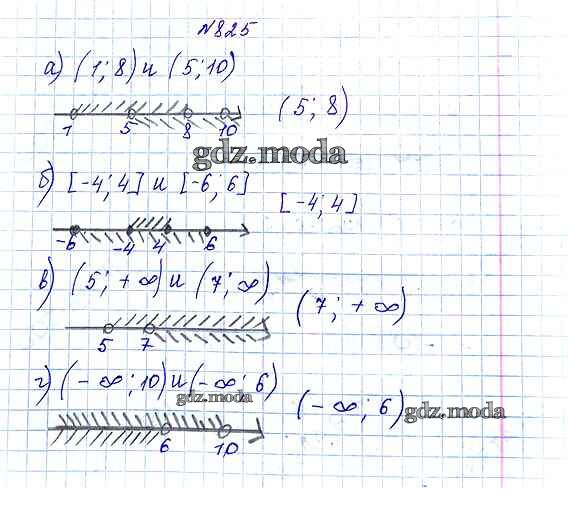 №825
а) (1; 8) и (5; 10)
(5; 8)
1 5 8 10
gdz.moda
б) [-4; 4] и [-6; 6]
[-4; 4]
-6 -4 4 6
в) (5; +∞) и (7; ∞)
(7; +∞)
5 7
г) (-∞; 10) и (-∞; 6)
(-∞; 6)
gdz.moda
gdz.moda
6 10